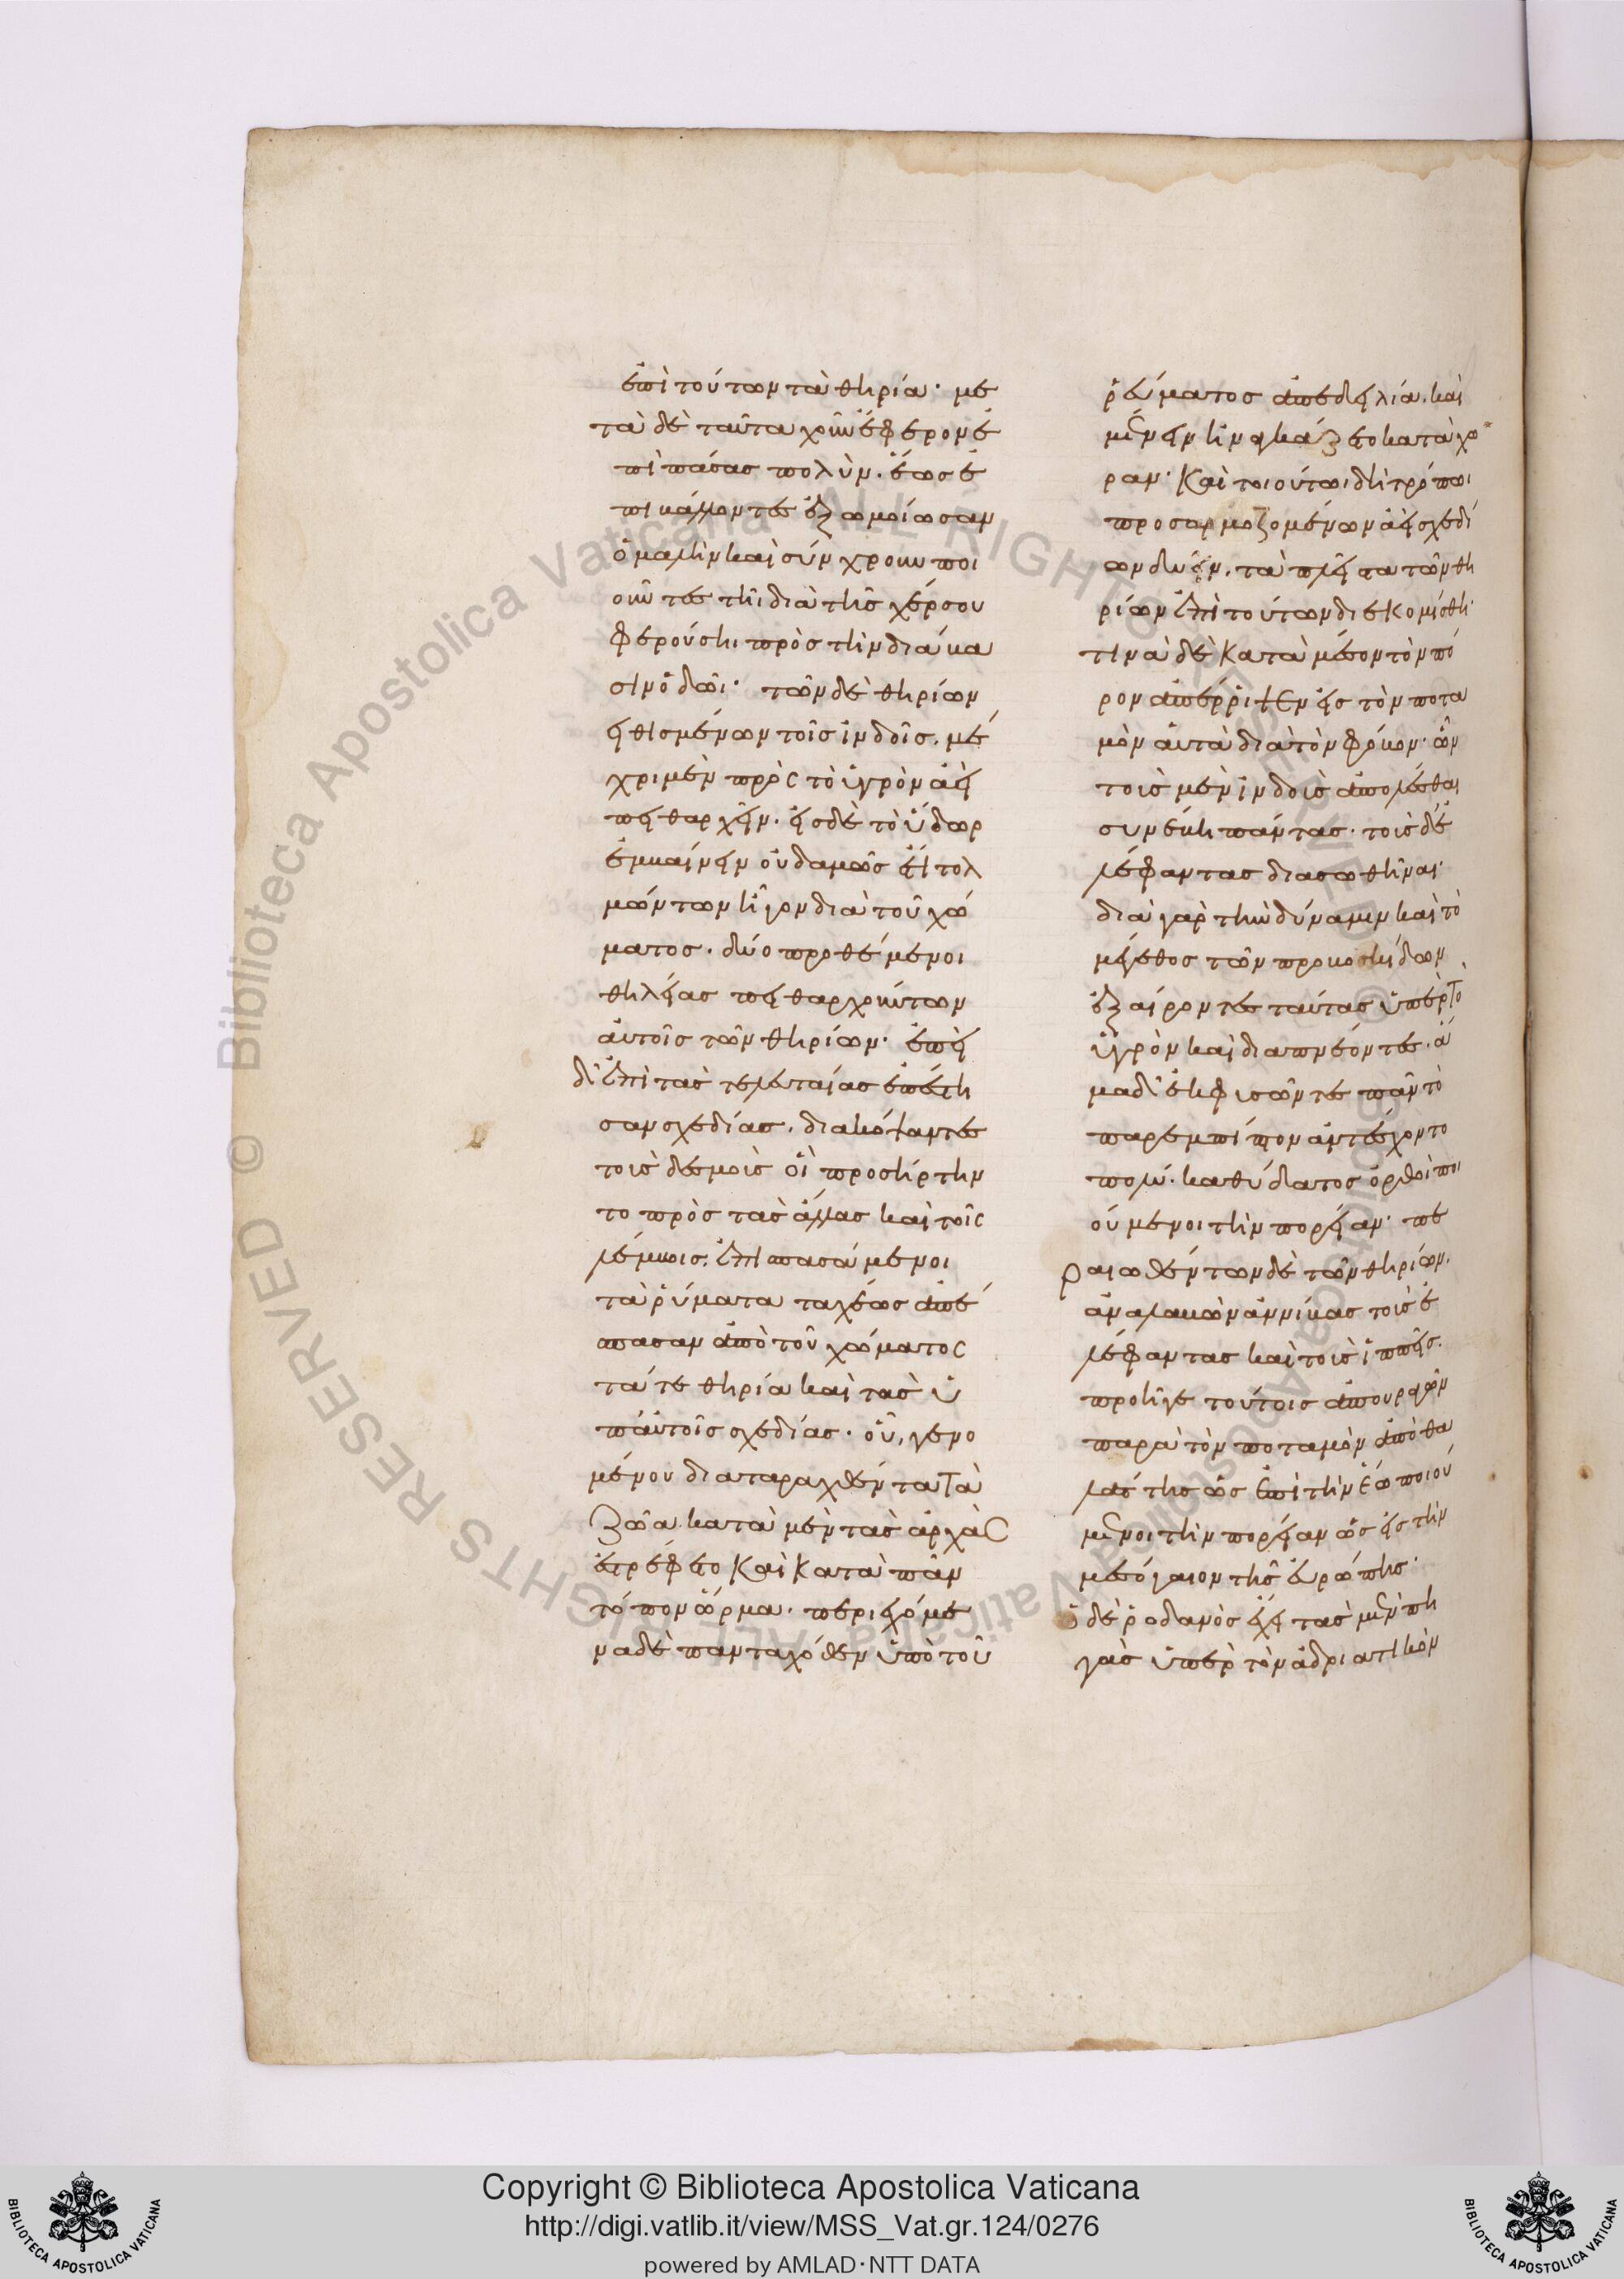 ἐπὶ τούτων τὰ θηρία· με
τὰ δὲ ταῦτα χοῦν ἔφερον ἐ
πὶ πάσας πολύν. ἕως ἐ
πιβάλλοντες ἐξωμοίωσαν
ὁμαλὴν καὶ σύγχρουν ποι
οῦντες τῆι διὰ τῆς χέρσου
φερούσηι πρὸς τὴν διάβα
σιν ὁδῶι· τῶν δὲ θηρίων
εἰθισμένων τοῖς ἰνδοῖς. μέ
χρι μὲν πρὸς τὸ ὑγρὸν ἀεὶ
πειθαρχεῖν. εἰς δὲ τὸ ὕδωρ
ἐμβαίνειν οὐδαμῶς ἔτι τολ
μώντων ἦγον διὰ τοῦ χώ
ματος. δύο προθέμενοι
θηλείας πειθαρχούντων
αὐτοῖς τῶν θηρίων· ἐπεὶ
δ' ἐπὶ τὰς τελευταίας ἐπέστη
σαν σχεδίας. διακόψαντες
τοὺς δεσμοὺς οἷς προσήρτην
το πρὸς τὰς ἄλλας καὶ τοῖς
λέμβοις. ἐπισπασάμενοι
τὰ ῥύματα ταχέως ἀπέ
σπασαν ἀπὸ τοῦ χώματος
τά τε θηρία καὶ τὰς ὑ
π' αὐτοῖς σχεδίας. οὗ, γενο
μένου διαταραχθέντα τὰ
ζῶα κατὰ μὲν τὰς ἀρχὰς
ἐστρέφετο καὶ κατὰ πᾶν
τόπον ὥρμα. περιεχόμε
να δὲ πανταχόθεν ὑπὸ τοῦ
ῥεύματος ἀπεδειλία. καὶ
μένειν ἠναγκάζετο κατὰ χώ
ραν· καὶ τοιούτωι δὴ τρόπωι
προσαρμοζομένων ἀεὶ σχεδι
ῶν δυεῖν. τὰ πλεῖστα τῶν θη
ρίων ἐπὶ τούτων διεκομίσθη·
τινὰ δὲ κατὰ μέσον τὸν πό
ρον ἀπέρριψεν εἰς τὸν ποτα
μὸν αὑτὰ διὰ τὸν φόβον· ὧν
τοὺς μὲν ἰνδοὺς ἀπολέσθαι
συνέβη πάντας. τοὺς δ' ἐ
λέφαντας διασωθῆναι·
διὰ γὰρ τὴν δύναμιν καὶ τὸ
μέγεθος τῶν προνοσκίδων
ἐξαίροντες ταύτας ὑπὲρ τὸ
ὑγρὸν καὶ διαπνέοντες. ἅ
μα δ' ἐκφυσῶντες πᾶν τὸ
παρεμπίπτον ἀντέσχον το
πολύ. καθ' ὕδατος ὀρθοὶ ποι
ούμενοι τὴν πορείαν· πε
ραιωθέντων δὲ τῶν θηρίων.
ἀναλαβὼν ἀννίβας τοὺς ἐ
λέφαντας καὶ τοὺς ἱππεῖς.
προῆγε τούτοις ἀπουραγῶν
παρὰ τὸν ποταμὸν ἀπὸ θα
λάττης ὡς ἐπὶ τὴν ἕω ποιού
μενοι τὴν πορείαν ὡς εἰς τὴν
μεσόγαιον τῆς εὐρώπης·
ὁ δὲ ῥοδανὸς ἔχει τὰς μὲν πη
γὰς ὑπὲρ τὸν ἀδριατικὸν
Copyright © Biblioteca Apostolica Vaticana
http://digi.vatlib.it/view/MSS_Vat.gr.124/0276
powered by AMLAD·NTT DATA